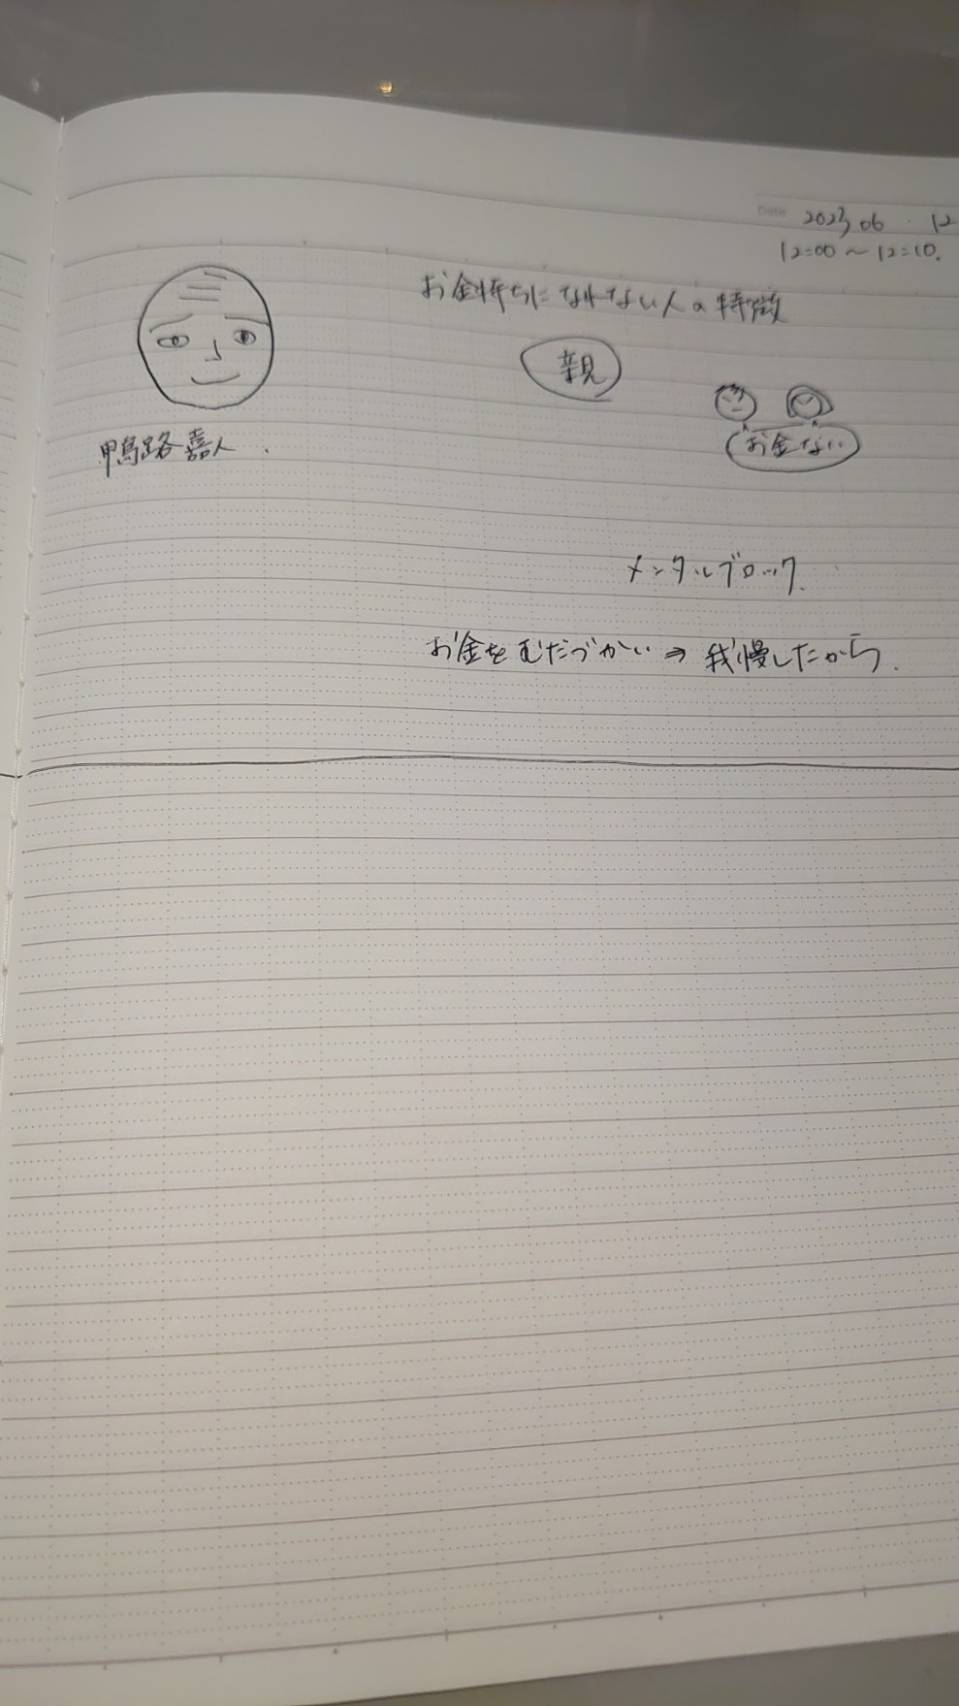 Date 2023 06 . 12
12:00 〜 12:10.
お金持ちになれない人の特徴
親
お金ない
鴨路 嘉人.
メンタルブロック.
お金をむだづかい ⇒ 我慢したから.